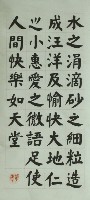 水之涓滴砂之細粒造
成汪洋及愉快大地仁
之小惠愛之微語足使
人間快樂如天堂